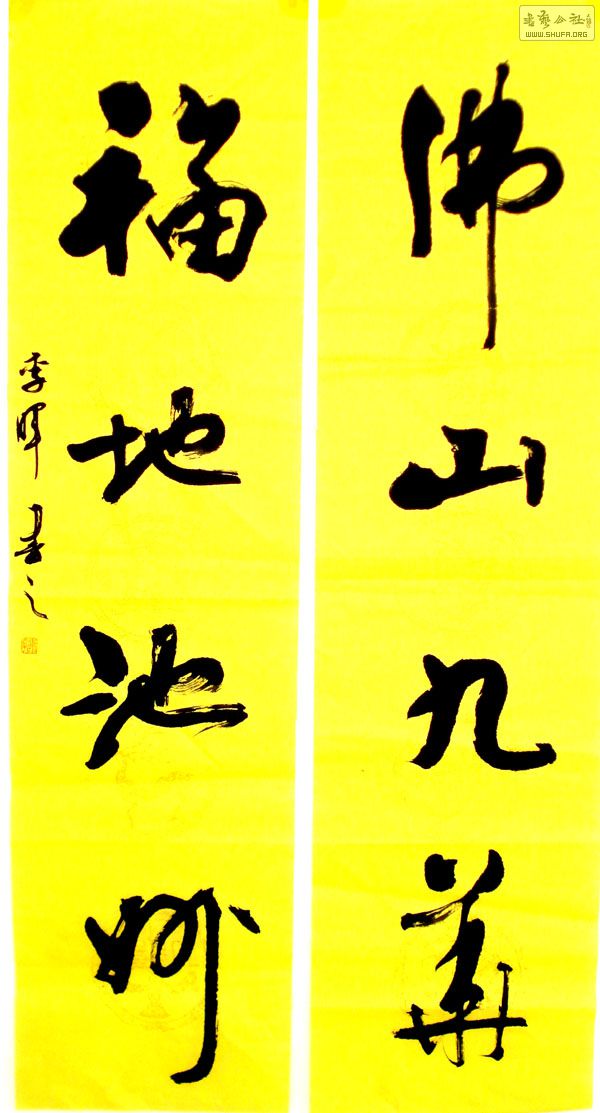 佛山九華
福地池州
季暉書之
書藝公社
WWW.SHUFA.ORG